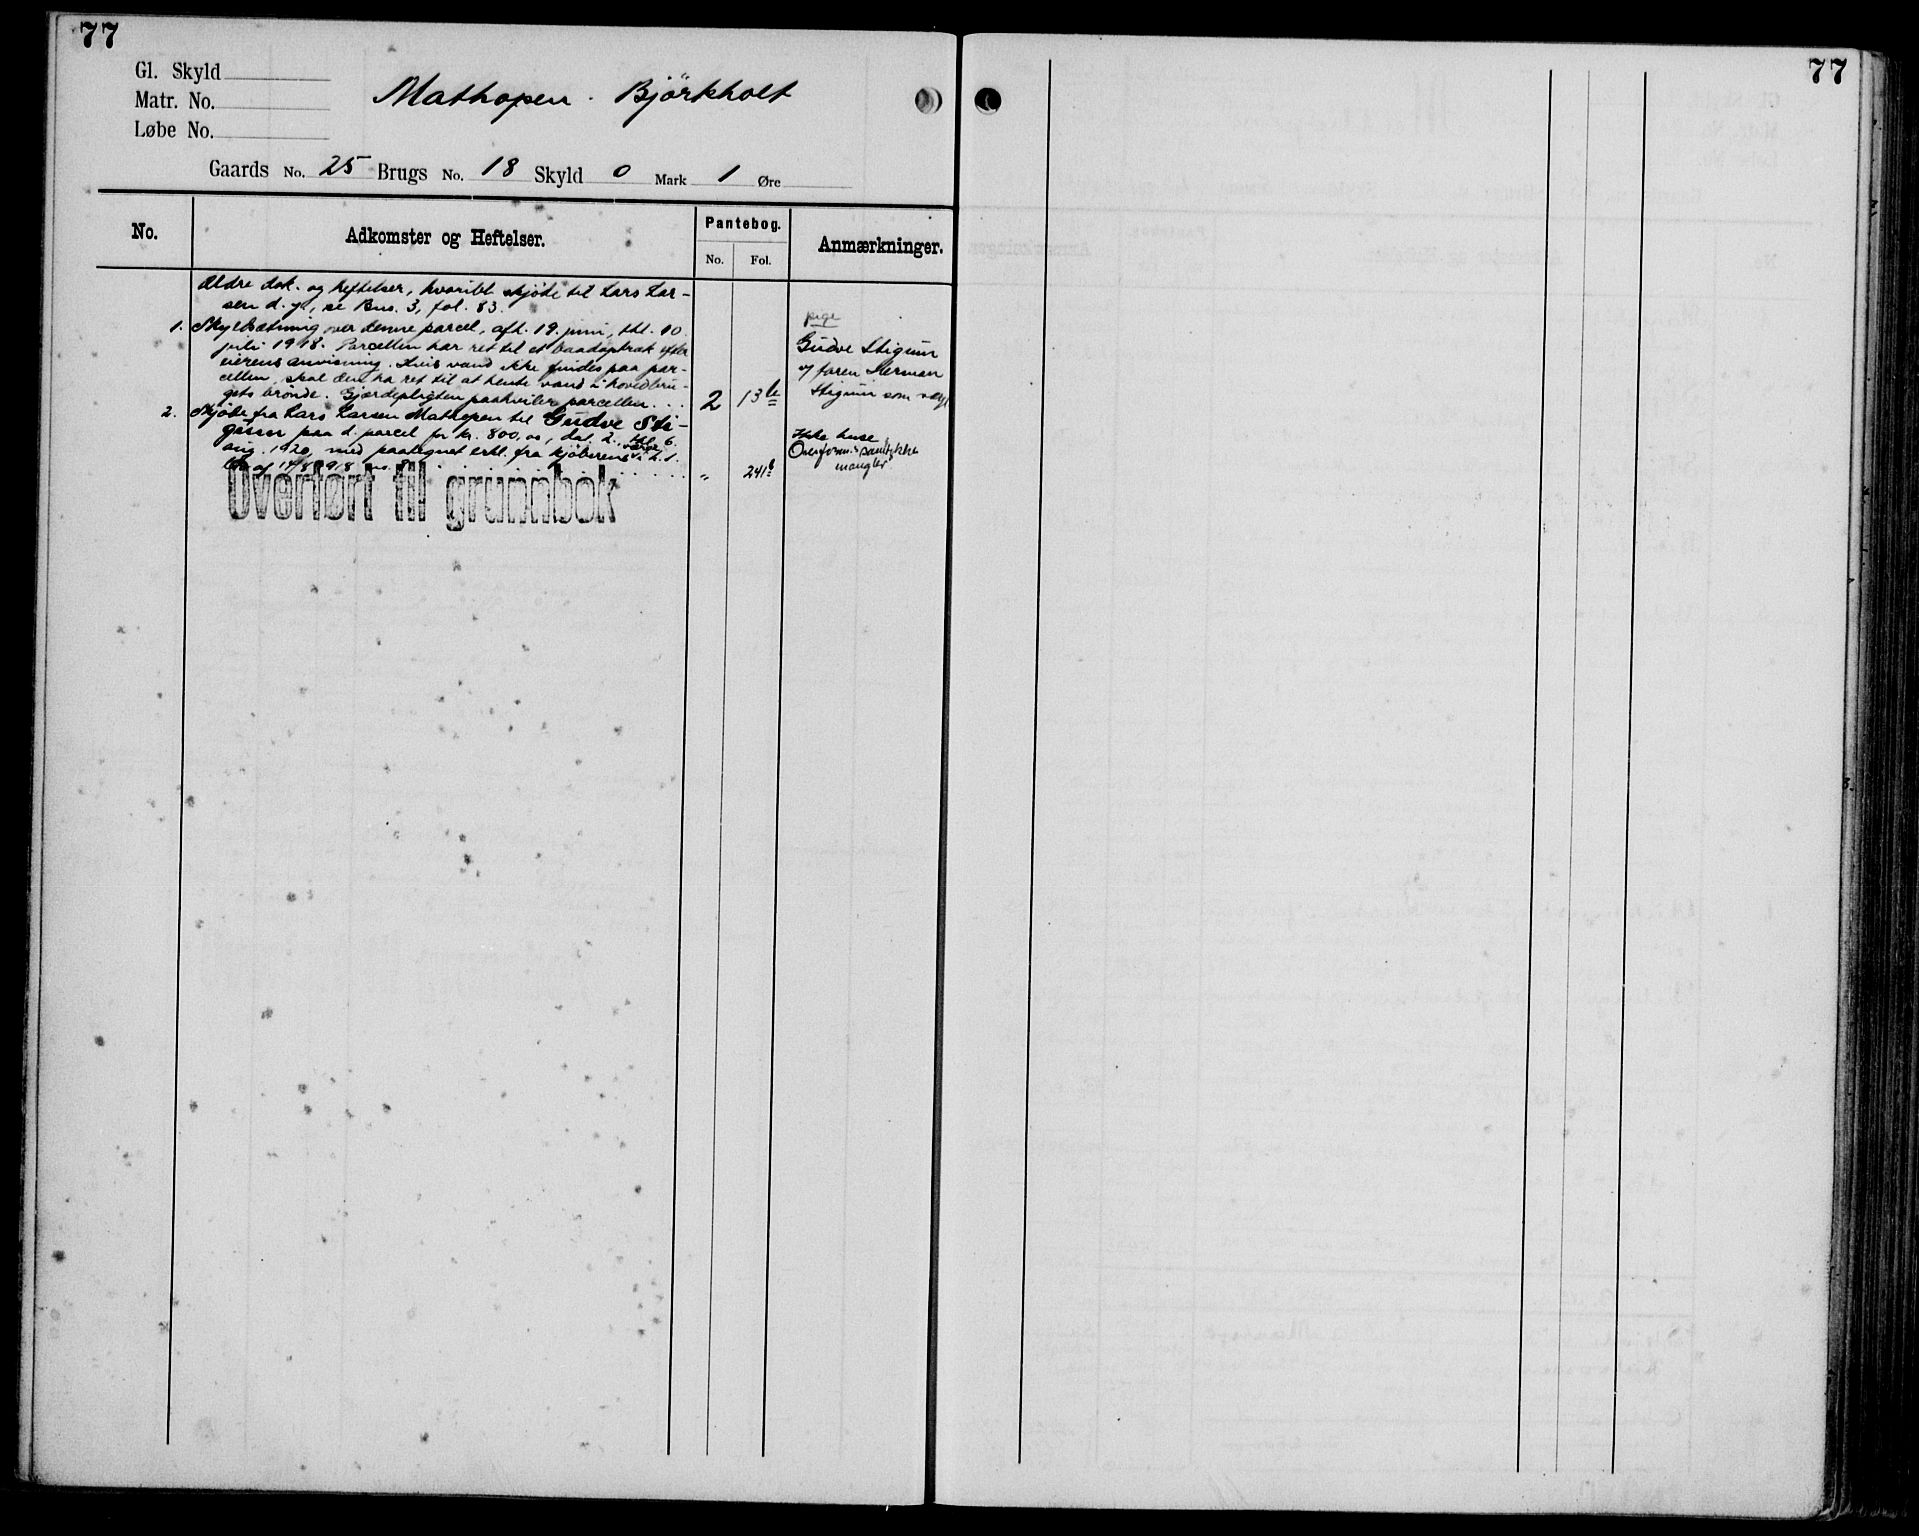 77
77
Gl. Skyld
Matr. No.
Løbe No.
Mathopen. Björkholt
Gaards No. 25 Brugs No. 18 Skyld 0 Mark 1 Øre
No.
Adkomster og Heftelser.
Pantebog.
No. Fol.
Anmærkninger.
Ældre dok. og heftelser, hvoribl. skjöde til Lars Lar-
sen d. y., se Bno. 3, fol. 83.
1. Skyldsætning over denne parcel, afh. 19. juni, thl. 10.
juli 1918. Parcellen har ret til et baadoptræk efter
eierens anvisning. Hvis vand ikke findes paa par-
cellen, skal den ha ret til at hente vand i hovedbru-
gets brönde. Gjerdepligten paahviler parcellen. . . 2 13b
2. Skjöde fra Lars Larsen Mathopen til Gudve Sti-
gum paa d. parcel for kr. 800,00, dat. 2., thl. 6.
aug. 1920, med paategnet erkl. fra kjöberens værge
. . . . . „ 241b
pige
Gudve Stigum
v/ faren Herman
Stigum som værge
Ikke huse
Overform.s samtykke
mangler
Overført til grunnbok